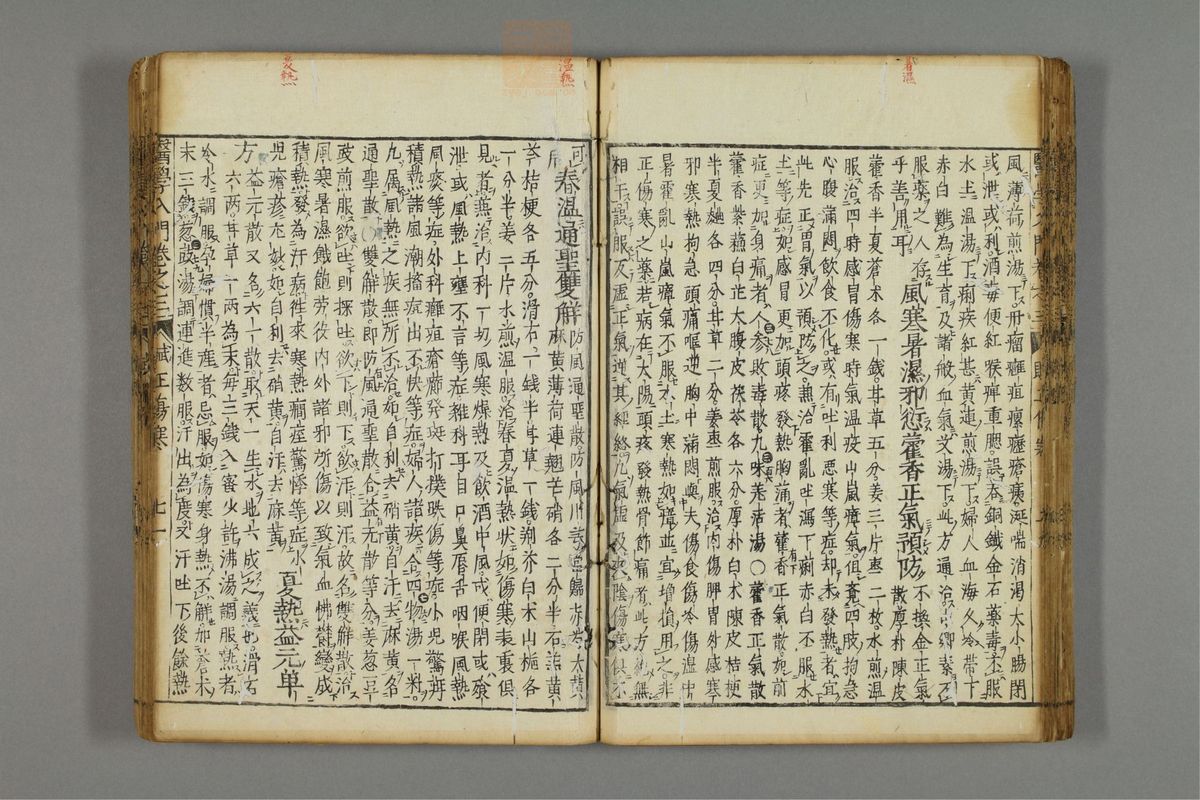 暑濕
風薄荷煎湯下丹瘤癰疽瘰癧瘡瘍涎喘消渴大小腸閉
或泄或利消毒便紅猴痺重腮誤吞銅鐵金石藥毒不服
水土溫湯下痢疾紅甚黄連煎湯下婦人血海久冷帶下
赤白難為生育及諸般血氣艾湯下此方通治
服藥之人存
乎善用耳
風寒暑濕邪愆藿香正氣預防
不換金正氣
散厚朴陳皮
藿香半夏蒼朮各一錢甘草五分姜三片棗二枚水煎溫
服治四時感冒傷寒時氣溫疫山嵐瘴氣但四肢拘急
心腹滿悶飲食不化或有吐利惡寒等症却未發熱者宜
此先正胃氣以預防之兼治霍亂吐瀉下痢赤白不服水
土等症如感冒更加頭疼發熱胸滿者藿香正氣散如前
症更加身痛者人參敗毒散九味羌活湯〇藿香正氣散
藿香紫蘓白芷大腹皮茯苓各六分厚朴白朮陳皮桔梗
半夏麯各四分甘草二分姜棗煎服治內傷脾胃外感寒
邪寒熱拘急頭痛嘔逆胸中滿悶與夫傷食傷冷傷溫中
暑霍亂山嵐瘴氣不服水土寒熱如瘧並宜增損用之非
正傷寒之藥若病在太陽頭疼發熱骨節痛者此方絶無
相干誤服反虛正氣逆其經絡
溫熱
春溫通聖雙解
防風通聖散防風川芎當歸赤芍大黄
麻黄薄荷連翹芒硝各二分半石膏黄
芩桔梗各五分滑石一錢半甘草一錢荊芥白朮山梔各
一分半姜二片水煎溫服治春夏溫熱狀如傷寒表裏俱
見者兼治內科一切風寒燥熱及飲酒中風或便閉或飱
泄或風熱上壅不言等症雜科耳目口鼻唇舌咽喉風熱
風痰等症外科癰疽瘡癤發斑打撲跌傷等症小兒驚疳
積熱諸風潮搐痘出不快等症婦人諸疾合四物湯一料
九属風熱之疾無所不治如自利去硝黄自汗去麻黄名
通聖散〇雙解散即防風通聖散合益元散等分姜葱豆
豉煎服欲吐則探吐欲下則下欲汗則汗故名雙解散治
風寒暑濕饑飽勞役內外諸邪所傷以致氣血怫鬱變成
積熱發為汗病徃來寒熱癇痓驚悸等症小
兒瘡疹尤妙如自利去硝黄自汗去麻黄
夏熱
夏熱益元單
方
益元散又名六一散取天一生水地六成之之義也滑石
六兩甘草一兩為末每三錢入蜜少許沸湯調服熱者
冷水調服孕婦慣半産者忌服如傷寒身熱不解加蒼朮
末三錢葱豉湯調連進數服汗出為度又汗吐下後餘熱
醫學入門卷之三
正傷寒
七一